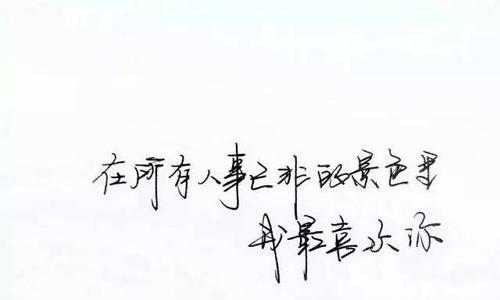 在所有人事已非的景色里
我最喜欢你